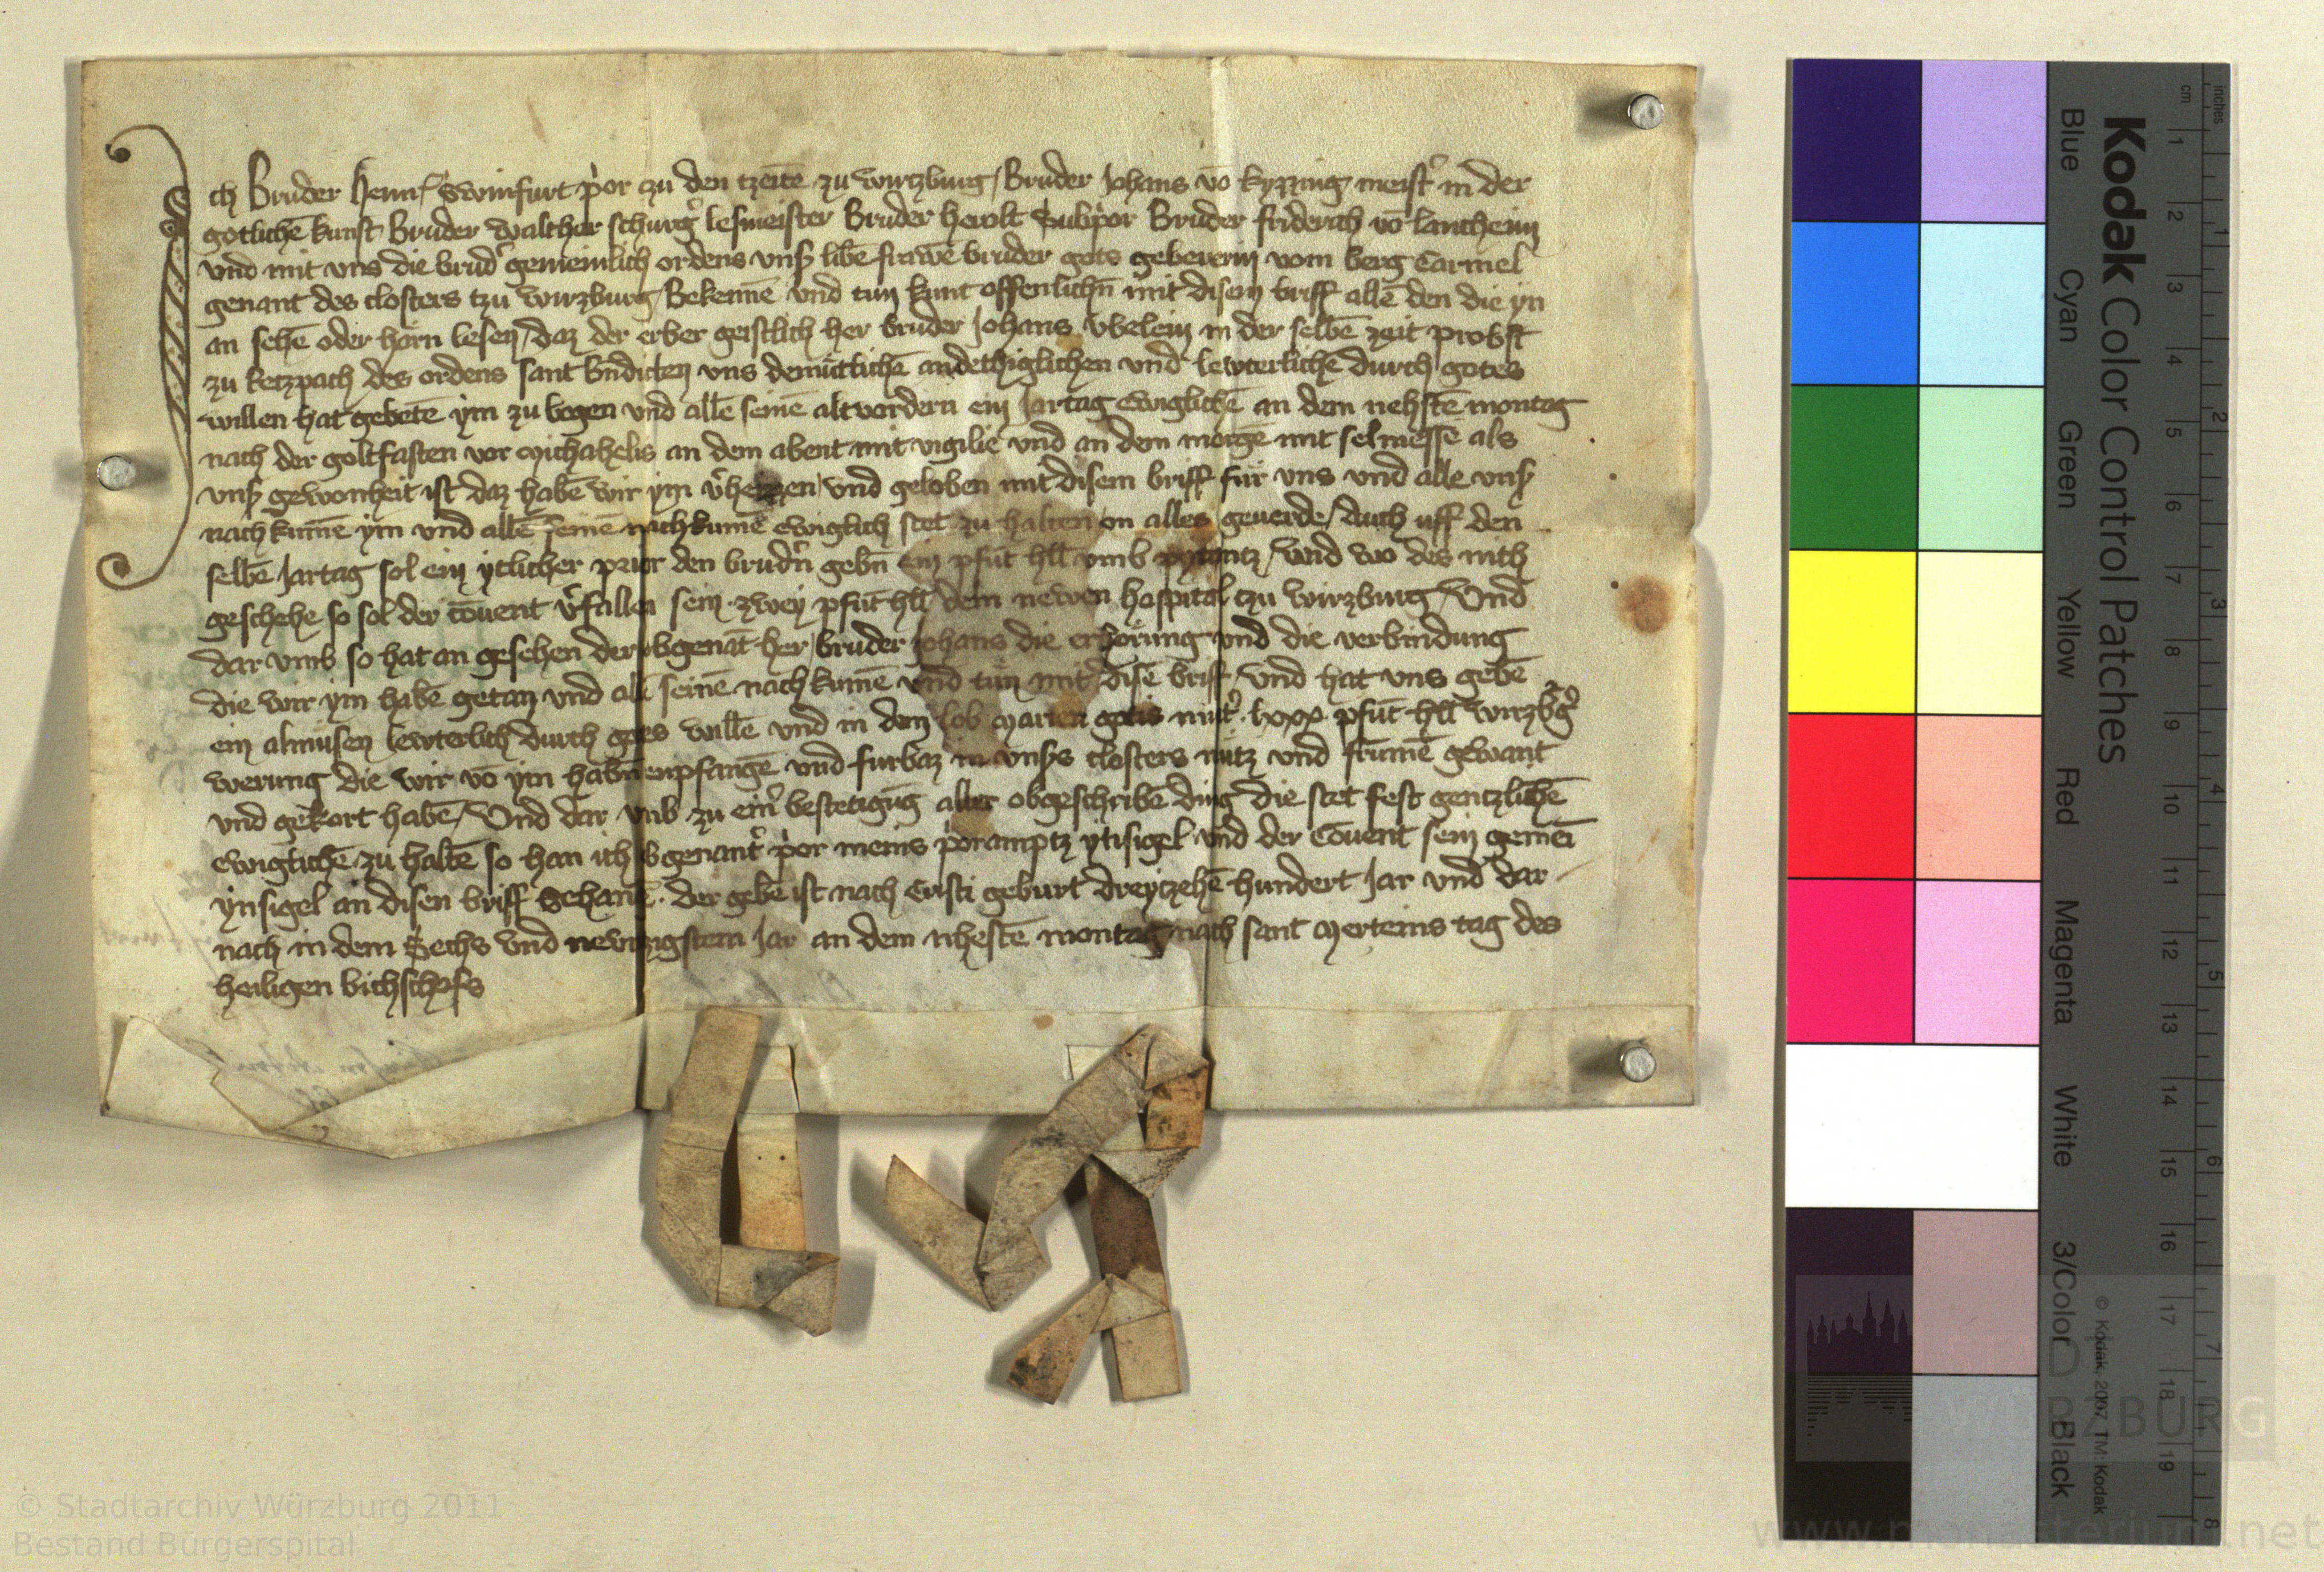 Ich Bruder Heinr̄ Swinfurt p̾or zu den tzeitē zu wirtzburg / Bruder Johans vō kyzzing meist̾ in der
gotlichē kunst Bruder Walther schurg̾ lesmeister Bruder herolt Subp̾or Bruder friderich vō lancheim
vnd mit vns die brud̾ gemeinlich ordens vnß libē frawē bruder gots gebererin vom berg Carmel
genant des closters tzu wirzburg Bekennē vnd tun kunt offenlichn̄ mit disem briff allē den die yn
an sehē oder horn lesen / daz der erber geistlich her bruder Johans Vbelein in der selbē zeit probst
zu Retzpach des ordens sant bn̄dicten vns demutlichē andethiglichen vnd lewterlichē durch gotes
willen hat gebetē ym zu begen vnd allē seinē altvordern ein Jartag Ewiglichē an dem nehstē montag
nach der goltfasten vor Michahelis an dem abent mit vigilie vnd an dem morgē mit selmesse als
vnß gewonheit ist daz habē wir ym v̾heizzen vnd geloben mit disem briff für vns vnd alle vnß
nachkumē ym vnd allē seinē nachkumē ewiglich stet zu halten on alles geuerde / Auch uff den
selbē Jartag sol ein ytlicher prior den brudn̾ gebn̄ ein pfūt hll̄ vmb pytantz / vnd wo des nith
geschehe so sol der cōuent v̾fallen sein zwey pfūt hll̄ dem newen hospital tzu wirzburg / Vnd
dar vmb so hat an gesehen der obgenāt her bruder Johans die erhorung vnd die verbindung
die wir ym habē getan vnd allē seinē nachkumē vnd tun mit disē briff / vnd hat vns gebē
ein almusen lewterlich durch gotes willē vnd in dem lob Marien gotis mut̾ lxxx pfūt hll̄ wirzbg̾
werung die wir vō ym habn̄ enpfangē vnd furbaz in vnßs closters nutz vnd frumē gewant
vnd gekort habē / Vnd dar vmb zu ein̾ bestetigūg aller obgeschribē ding die stet fest gentzlichē
ewiglichē zu haltē so han ich obgenant̾ p̾or meins p̾oramptz ytisigel vnd der Couent sein gemei
ynsigel an disen briff gehanḡ. der gebē ist nach Cristi geburt dreytzehē hundert Jar vnd dar
nach in dem Sechs vnd newntzigstem Jar an dem nhestē montag nach sant Merteins tag des
heiligen bichschofs
Kodak Color Control Patches
Blue Cyan Green Yellow Red Magenta White 3/Color Black
© Kodak, 2007, TM: Kodak
inches
cm
1 2 3 4 5 6 7 8 9 10 11 12 13 14 15 16 17 18 19
1 2 3 4 5 6 7 8
WÜRZBURG
© Stadtarchiv Würzburg 2011
Bestand Bürgerspital
www.monasterium.net